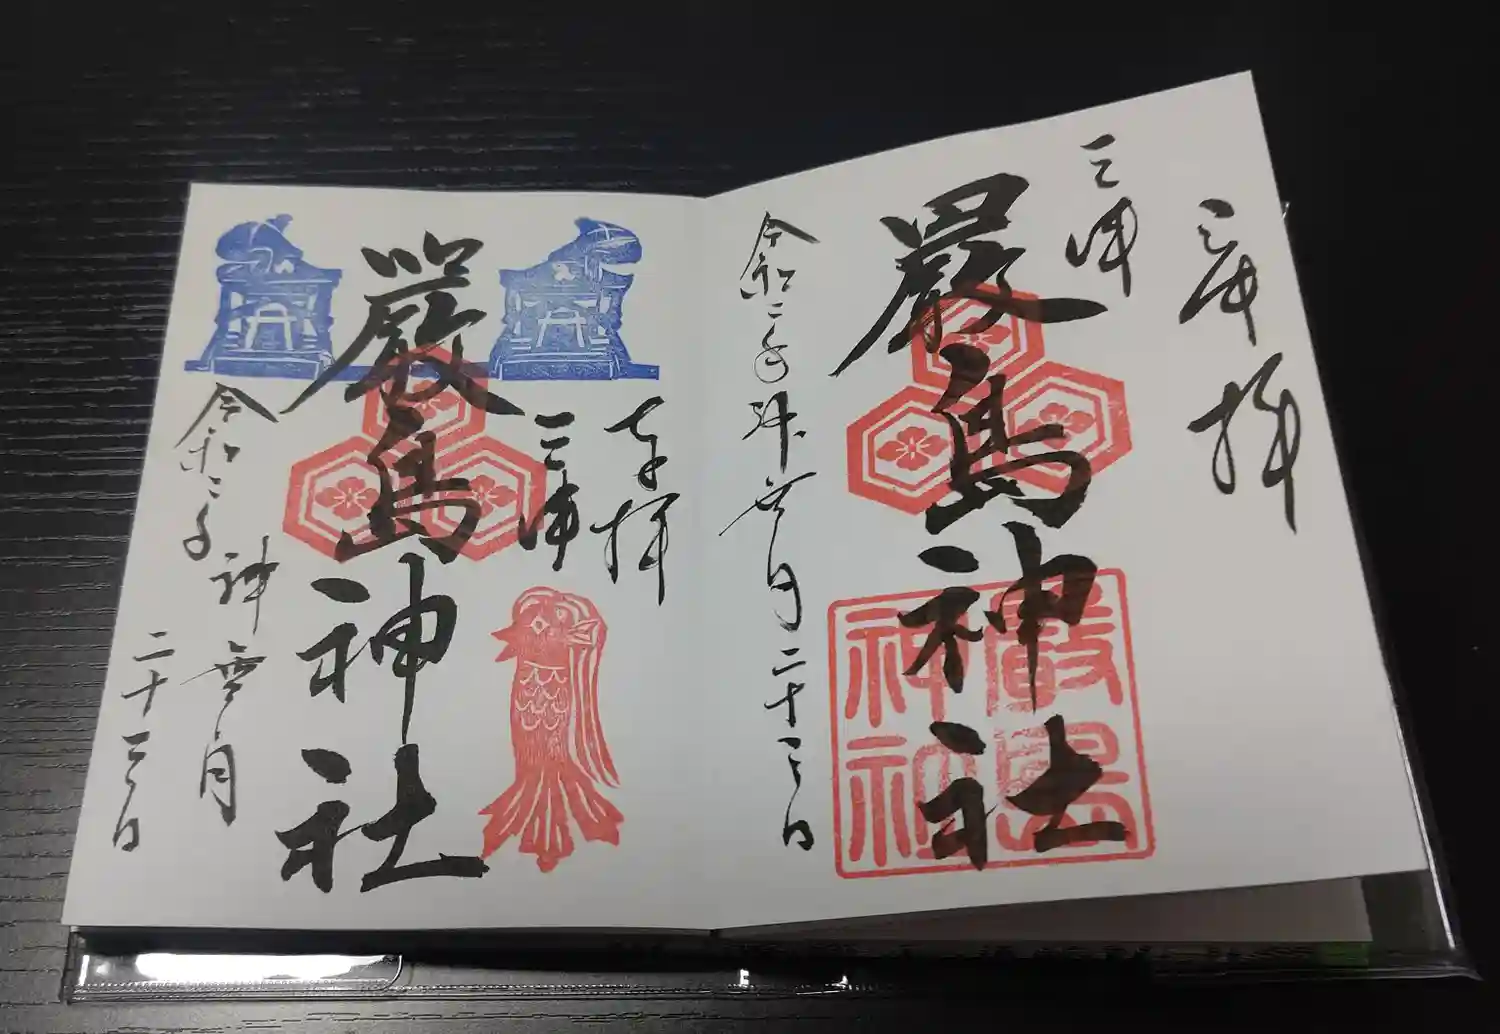 奉拝
三津
嚴島神社
嚴島
神社
令和二年神無月二十三日
奉拝
三津
嚴島神社
令和二年
神無月
二十三日